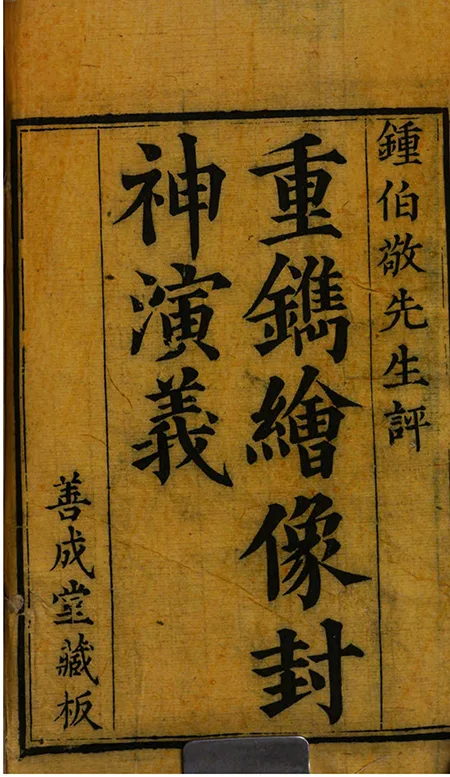 鍾伯敬先生評
重鐫繪像封
神演義
善成堂藏板